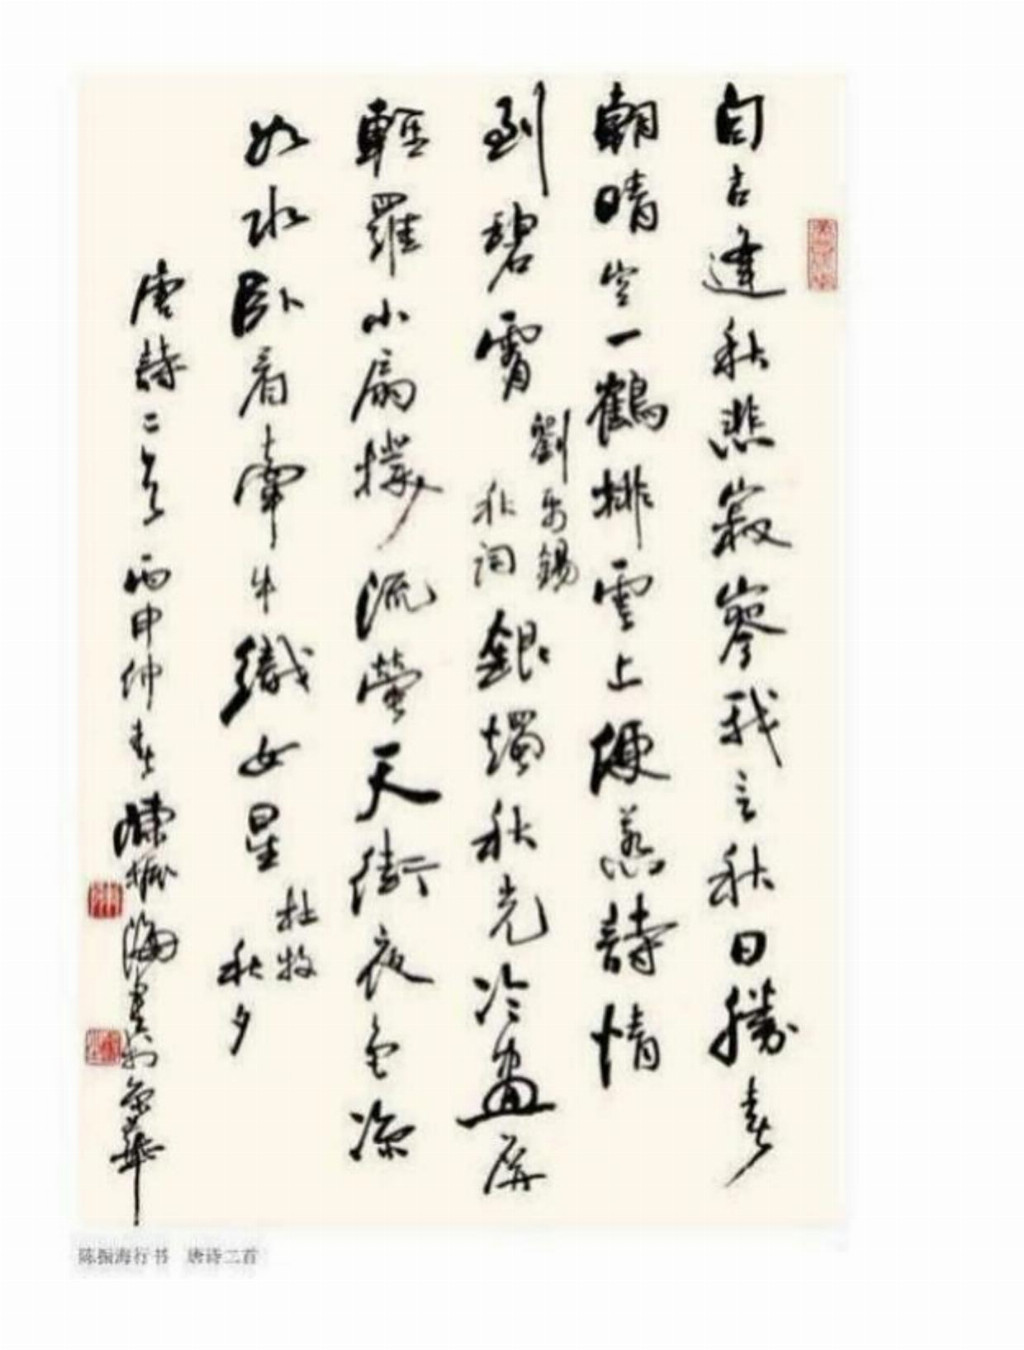 自古逢秋悲寂寥我言秋日勝春
朝晴空一鶴排雲上便惹詩情
到碧霄
劉禹錫
秋詞
銀燭秋光冷畫屏
輕羅小扇撲流螢天街夜色涼
如水卧看牽牛織女星
杜牧
秋夕
唐詩二首丙申仲春陳振海書於京華
陈振海行书 唐诗二首